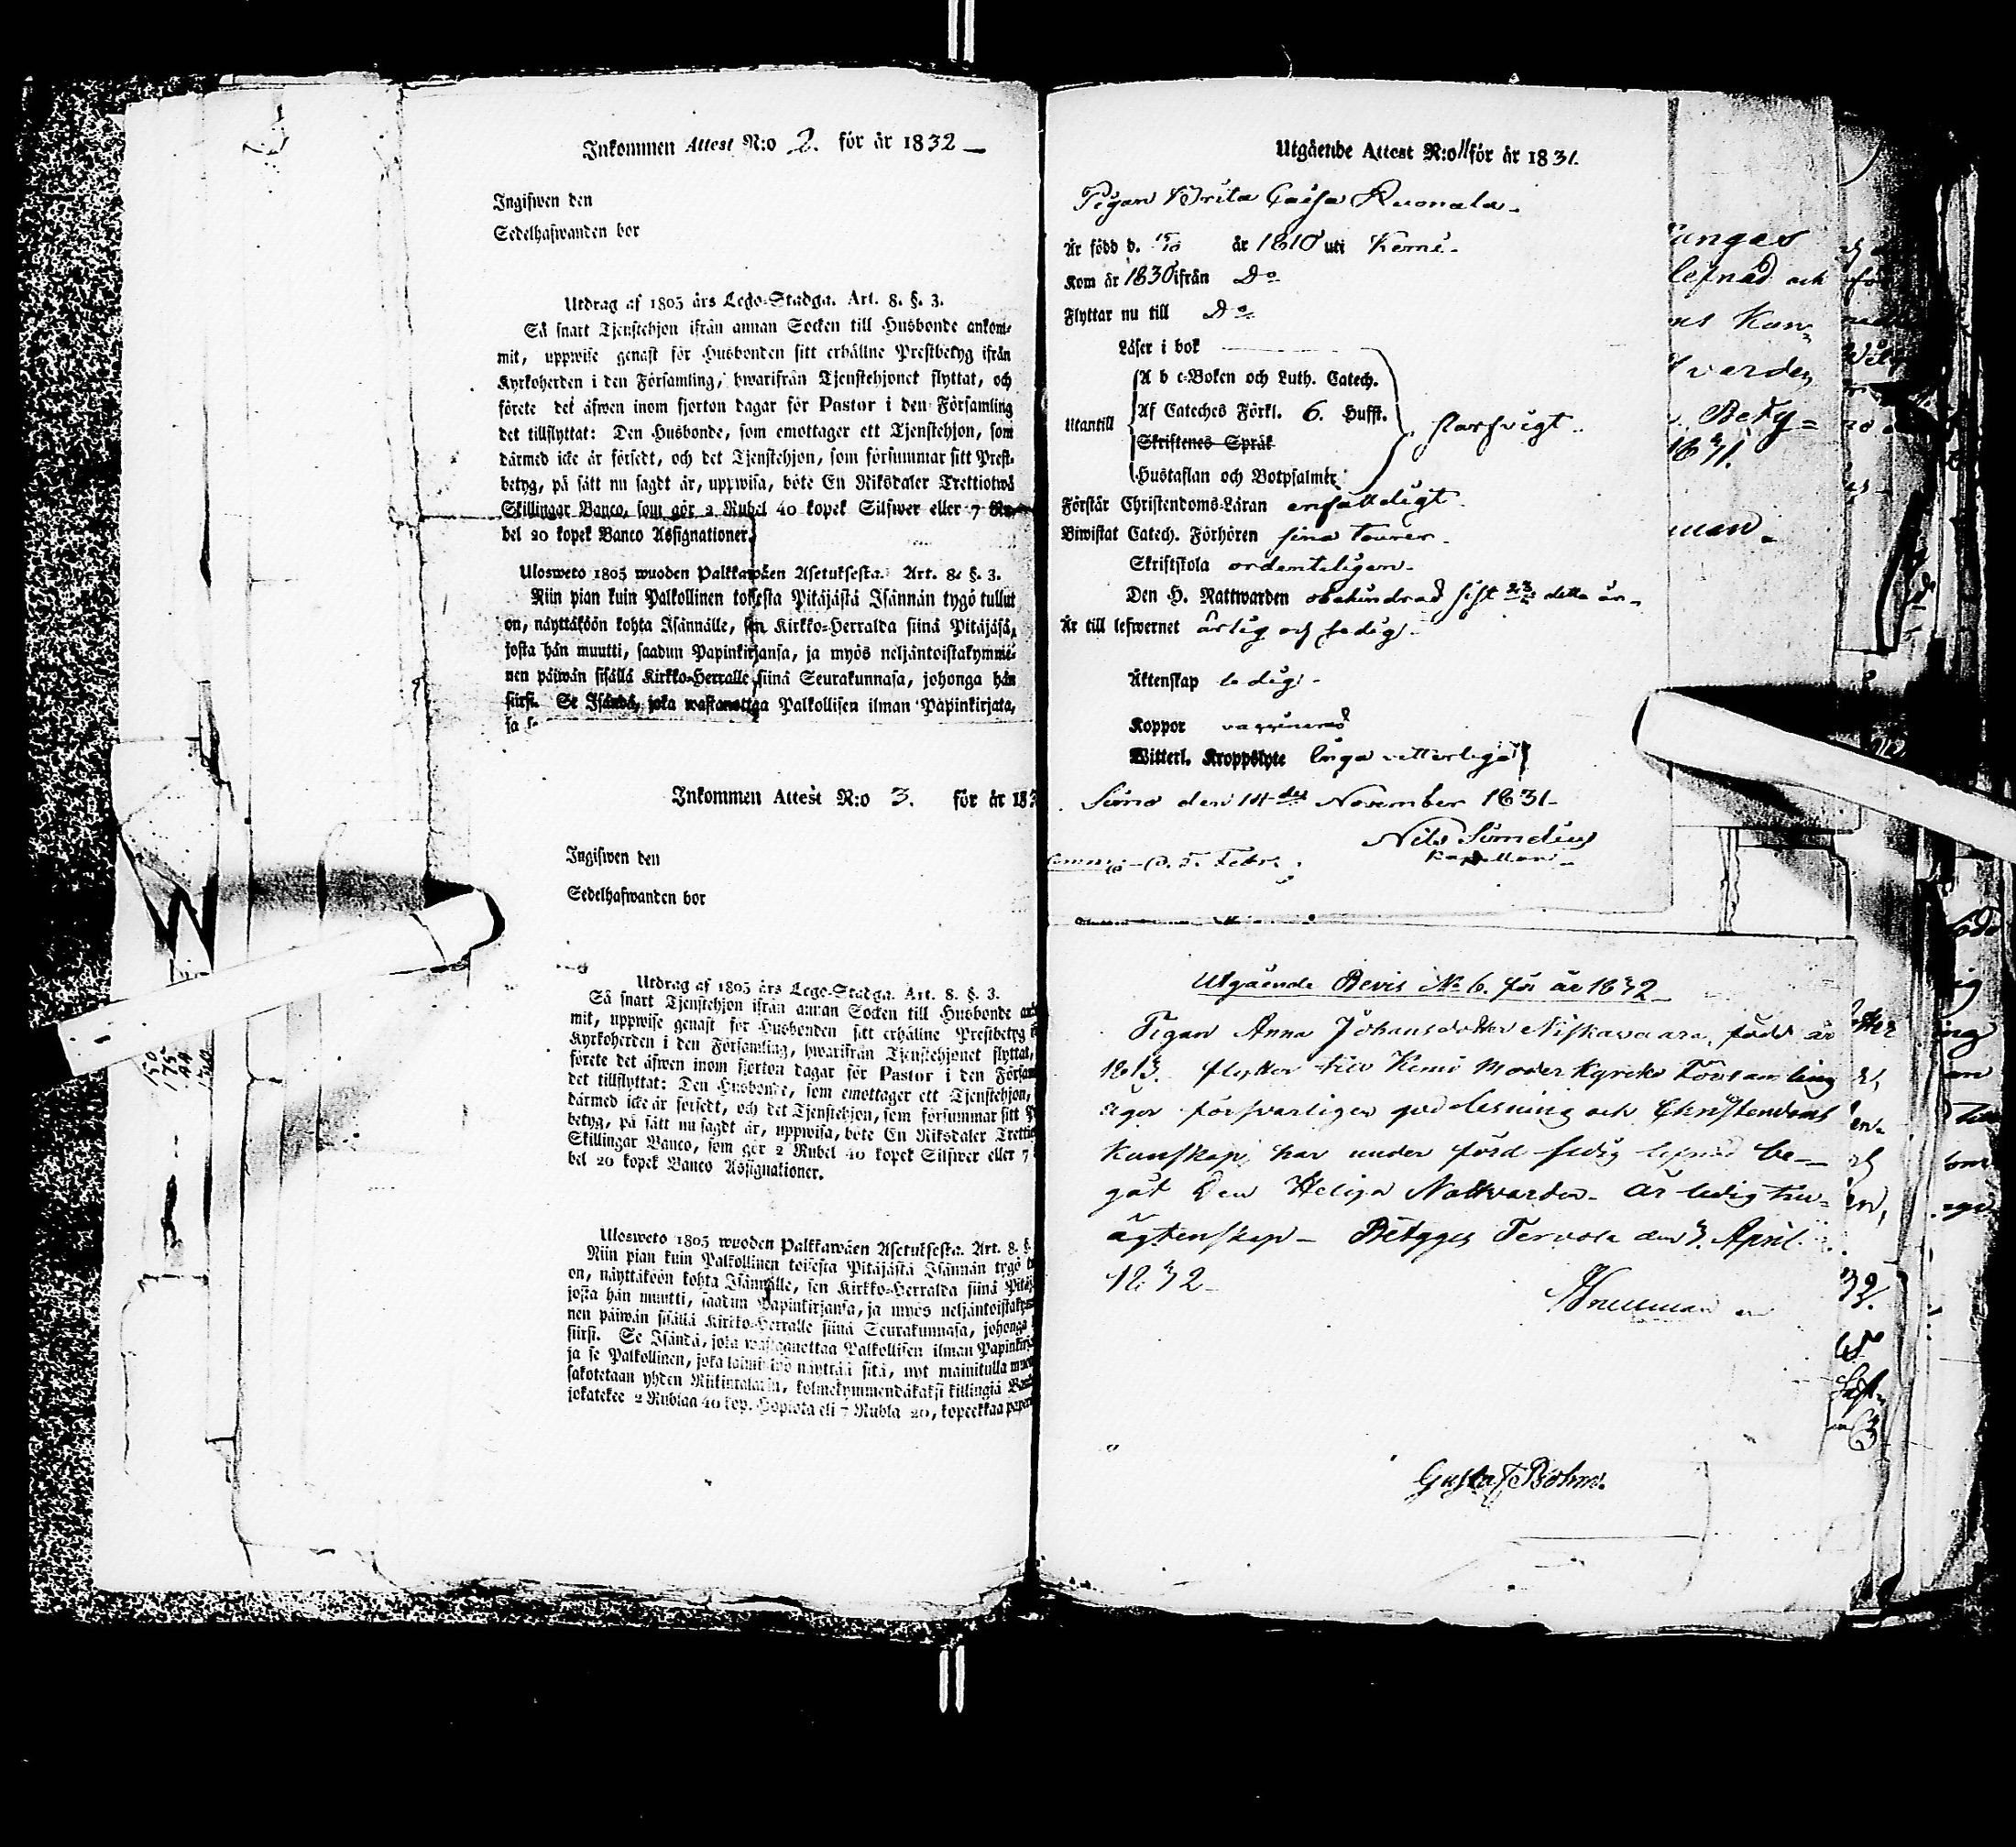 Inkommen Attest N:o 2. för år 1832 —
Ingifwen den
Sedelhafwanden bor
Utdrag af 1805 års Lego-Stadga. Art. 8. §. 3.
Så snart Tjenstehjon ifrån annan Socken till Husbonde ankom-
mit, uppwise genast för Husbonden sitt erhållne Prestbetyg ifrån
Kyrkoherden i den Församling, hwarifrån Tjenstehjonet flyttat, och
förete det äfwen inom fjorton dagar för Pastor i den Församling
det tillflyttat: Den Husbonde, som emottager ett Tjenstehjon, som
därmed icke är försedt, och det Tjenstehjon, som försummar sitt Prest-
betyg, på sätt nu sagdt är, uppwisa, böte En Riksdaler Trettiotwå
Skillingar Banco, som gör 2 Rubel 40 kopek Silfwer eller 7 Ru-
bel 20 kopek Banco Assignationer.
Ulosweto 1805 wuoden Palkkawäen Asetuksesta. Art. 8. §. 3.
Niin pian kuin Palkollinen toisesta Pitäjästä Isännän tygö tullut
on, näyttäköön kohta Isännälle, sen Kirkko-Herralda siinä Pitäjäsä,
josta hän muutti, saadun Papinkirjansa, ja myös neljäntoistakymme-
nen päiwän sisällä Kirkko-Herralle siinä Seurakunnasa, johonga hän
siirsi. Se Isändä, joka wastanottaa Palkollisen ilman Papinkirjata,
Inkommen Attest N:o 3. för år 183
Ingifwen den
Sedelhafwanden bor
Utdrag af 1805 års Lego-Stadga. Art. 8. §. 3.
Så snart Tjenstehjon ifrån annan Socken till Husbonde
mit, uppwise genast för Husbonden sitt erhållne Prestbetyg
Kyrkoherden i den Församling, hwarifrån Tjenstehjonet flyttat,
förete det äfwen inom fjorton dagar för Pastor i den
det tillflyttat: Den Husbonde, som emottager ett Tjenstehjon,
därmed icke är försedt, och det Tjenstehjon, som försummar sitt
betyg, på sätt nu sagdt är, uppwisa, böte En Riksdaler
Skillingar Banco, som gör 2 Rubel 40 kopek Silfwer eller 7
bel 20 kopek Banco Assignationer.
Ulosweto 1805 wuoden Palkkawäen Asetuksesta. Art. 8. §.
Niin pian kuin Palkollinen toisesta Pitäjästä Isännän tygö
on, näyttäköön kohta Isännälle, sen Kirkko-Herralda siinä
josta hän muutti, saadun Papinkirjansa, ja myös
nen päiwän sisällä Kirkko-Herralle siinä Seurakunnasa, johonga
siirsi. Se Isändä, joka wastanottaa Palkollisen ilman
ja se Palkollinen, joka näyttää sitä, nyt mainitulla
sakotetaan yhden Riikintalarin, kolmekymmendäkaksi killingiä
jokatekee 2 Rublaa 40 kop. Hopiota eli 7 Rubla 20, kopeekkaa
Utgående Attest N:o 11 för år 1831.
Pigan Brita Caisa Ruonala.
Är född d. 15/10 år 1810 uti Kemi.
Kom år 1830 ifrån Do
Flyttar nu till Do
Läser i bok
A b c-Boken och Luth. Catech.
Utantill Af Cateches Förkl. 6. Hufft. försvarligt.
Skriftenes Språk
Hustaflan och Botpsalmer
Förstår Christendoms-Läran enfaldeligt.
Biwistat Catech. Förhören sina tourer.
Skriftskola ordenteligen.
Den H. Nattwarden obehindrad sist detta år.
Är till lefwernet ärlig och sedig.
Äktenskap ledig.
Koppor vaccinerad
Witterl. Kroppslyte inga vetterliga
Simo den 14de November 1831.
Nils Simelius
Kapellan.
Utgående Bevis No 6. för år 1832
Pigan Anna Johansdotter Niskavaara, född år
1813. flyttar till Kemi Moder Kyrko Församling
äger försvarligen god läsning och Christendoms
Kunskap, har under förd sedig lefnad be-
gåt Den Heliga Nattvarden. Är ledig till
ägtenskap — Betyges Tervola den 3. April
1832
Gustaf Böhm.